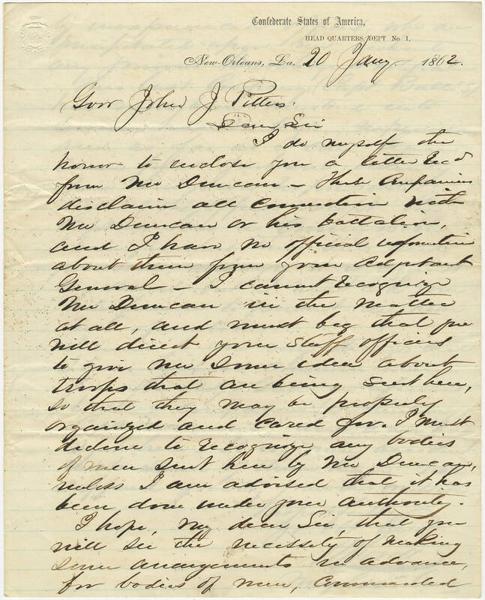 Confederate States of America,
HEAD QUARTERS, DEPT No. 1,
New-Orleans, La. 20 Jany 1862.
Govr John J Pettus
Dear Sir
I do myself the
honor to enclose you a letter recd
from Mr Duncan – These Companies
disclaim all connection with
Mr Duncan or his battalion,
and I have no official information
about them from your Adjutant
General – I cannot recognize
Mr Duncan in the matter
at all, and must beg that you
will direct your staff officers
to give me some idea about
troops that are being sent here,
so that they may be properly
organized and cared for. I must
decline to recognize any bodies
of men sent here by Mr Duncan,
unless I am advised that it has
been done under your authority.
I hope, my dear Sir that you
will see the necessity of making
some arrangements in advance,
for bodies of men, commanded